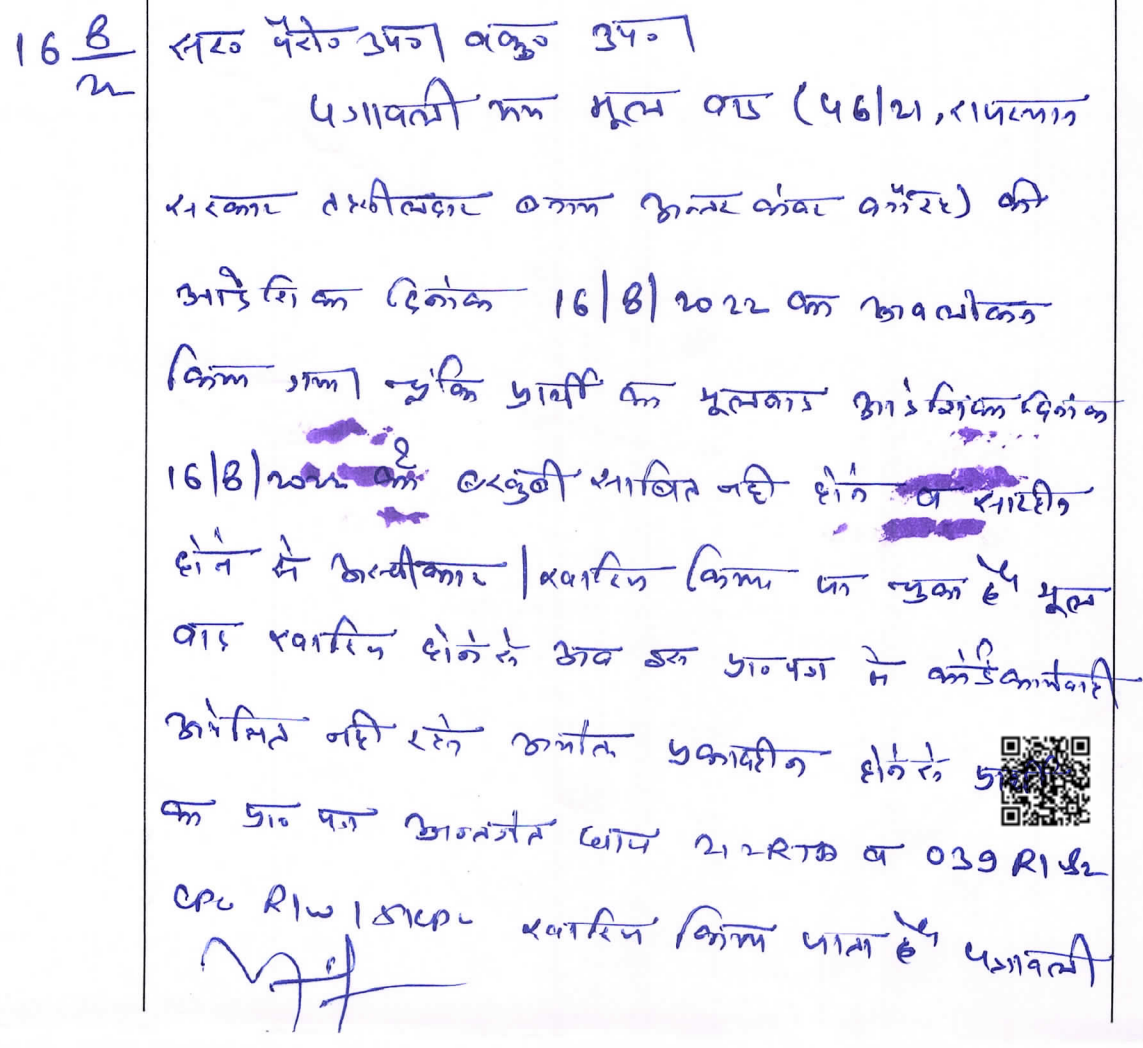 16 8/22 सर० पैरो० उप०। वकु० उप०।
पत्रावली मय मूल वाद (46/21, राजस्थान
सरकार तहसीलदार बनाम अन्तर कंवर वगैरह) की
आदेशिका दिनांक 16/8/2022 का अवलोकन
किया गया। चूंकि प्रार्थी का मूलवाद आदेशिका दिनांक
16/8/2022 को बखुबी साबित नही होने व सारहीन
होने से अस्वीकार/खारिज किया जा चुका है मूल
वाद खारिज होने से अब इस प्रा० पत्र मे कोई कार्यवाही
अपेक्षित नही रहने अर्थात प्रभावहीन होने से
का प्रा० पत्र अन्तर्गत धारा 212 RTA व 039 R1 &2
CPC R/W 151 CPC खारिज किया जाता है पत्रावली